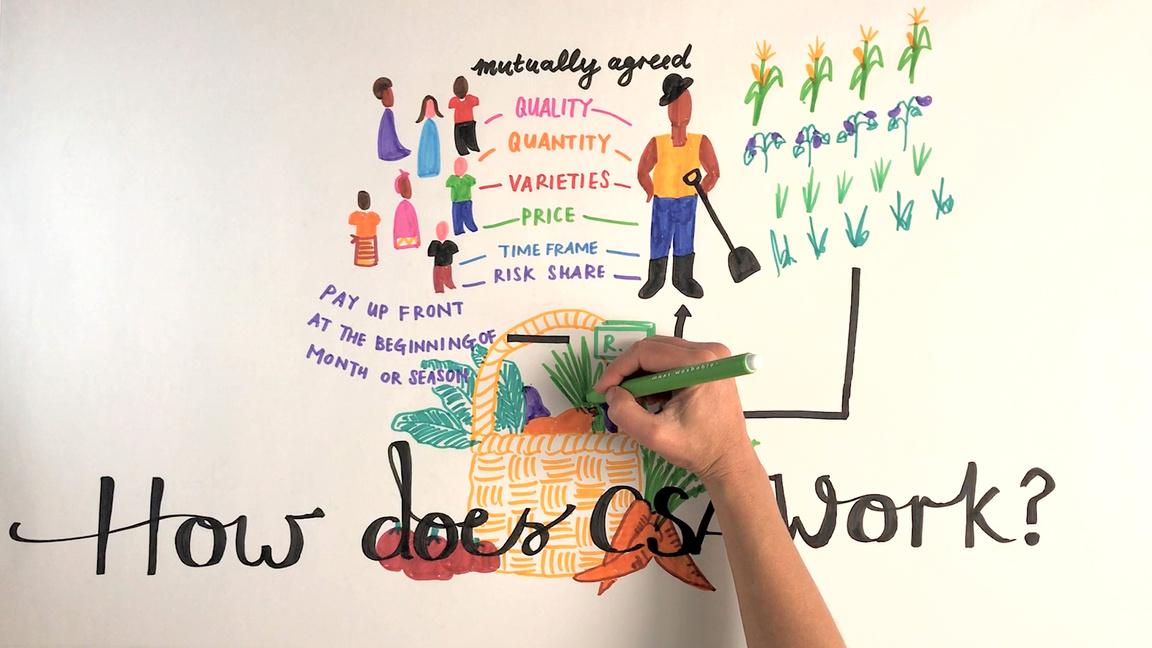 mutually agreed
QUALITY
QUANTITY
VARIETIES
PRICE
TIME FRAME
RISK SHARE
PAY UP FRONT
AT THE BEGINNING OF
MONTH OR SEASON
R.
How does CSA work?